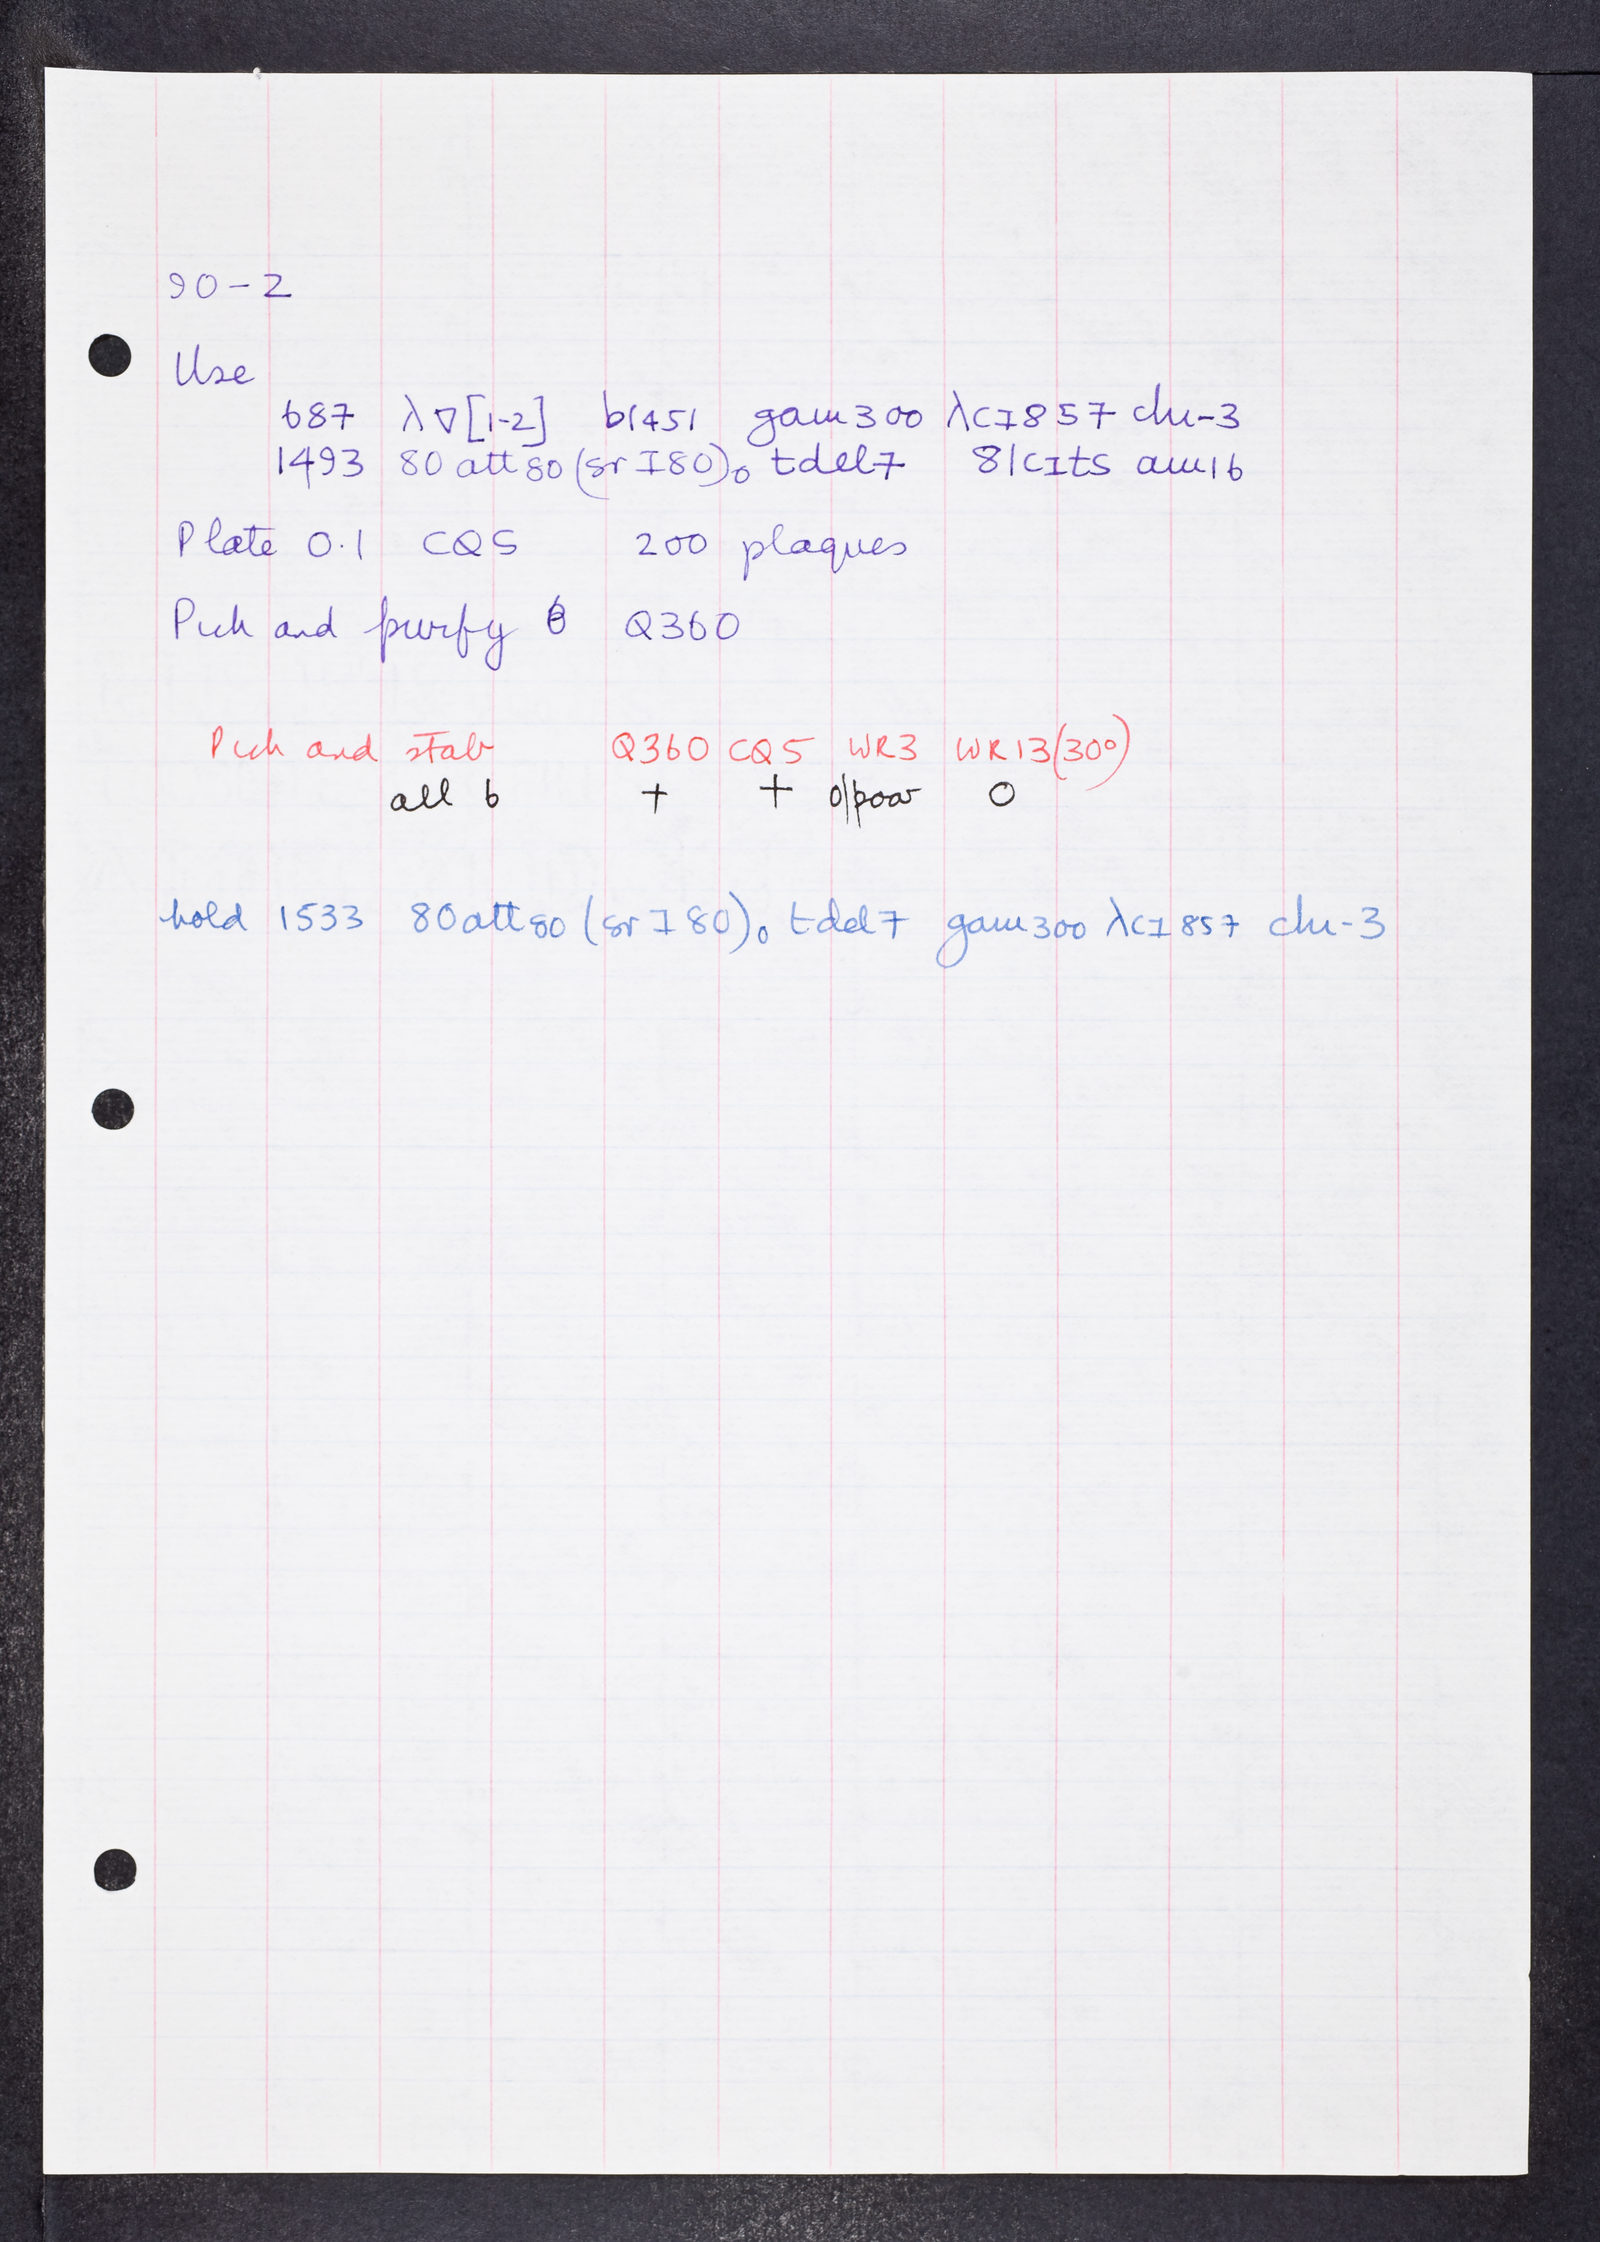 90-2
Use
687 λ∇[1-2] b1451 gam300 λcI857 chi-3
1493 80att80(srI80)₀ tdel7 81cIts am16
Plate 0.1 CQ5 200 plaques
Pick and purify 6 Q360
Pick and stab Q360 CQ5 WR3 WR13(30°)
all 6 + + 0/poor 0
hold 1533 80att80(srI80)₀ tdel7 gam300 λcI857 chi-3